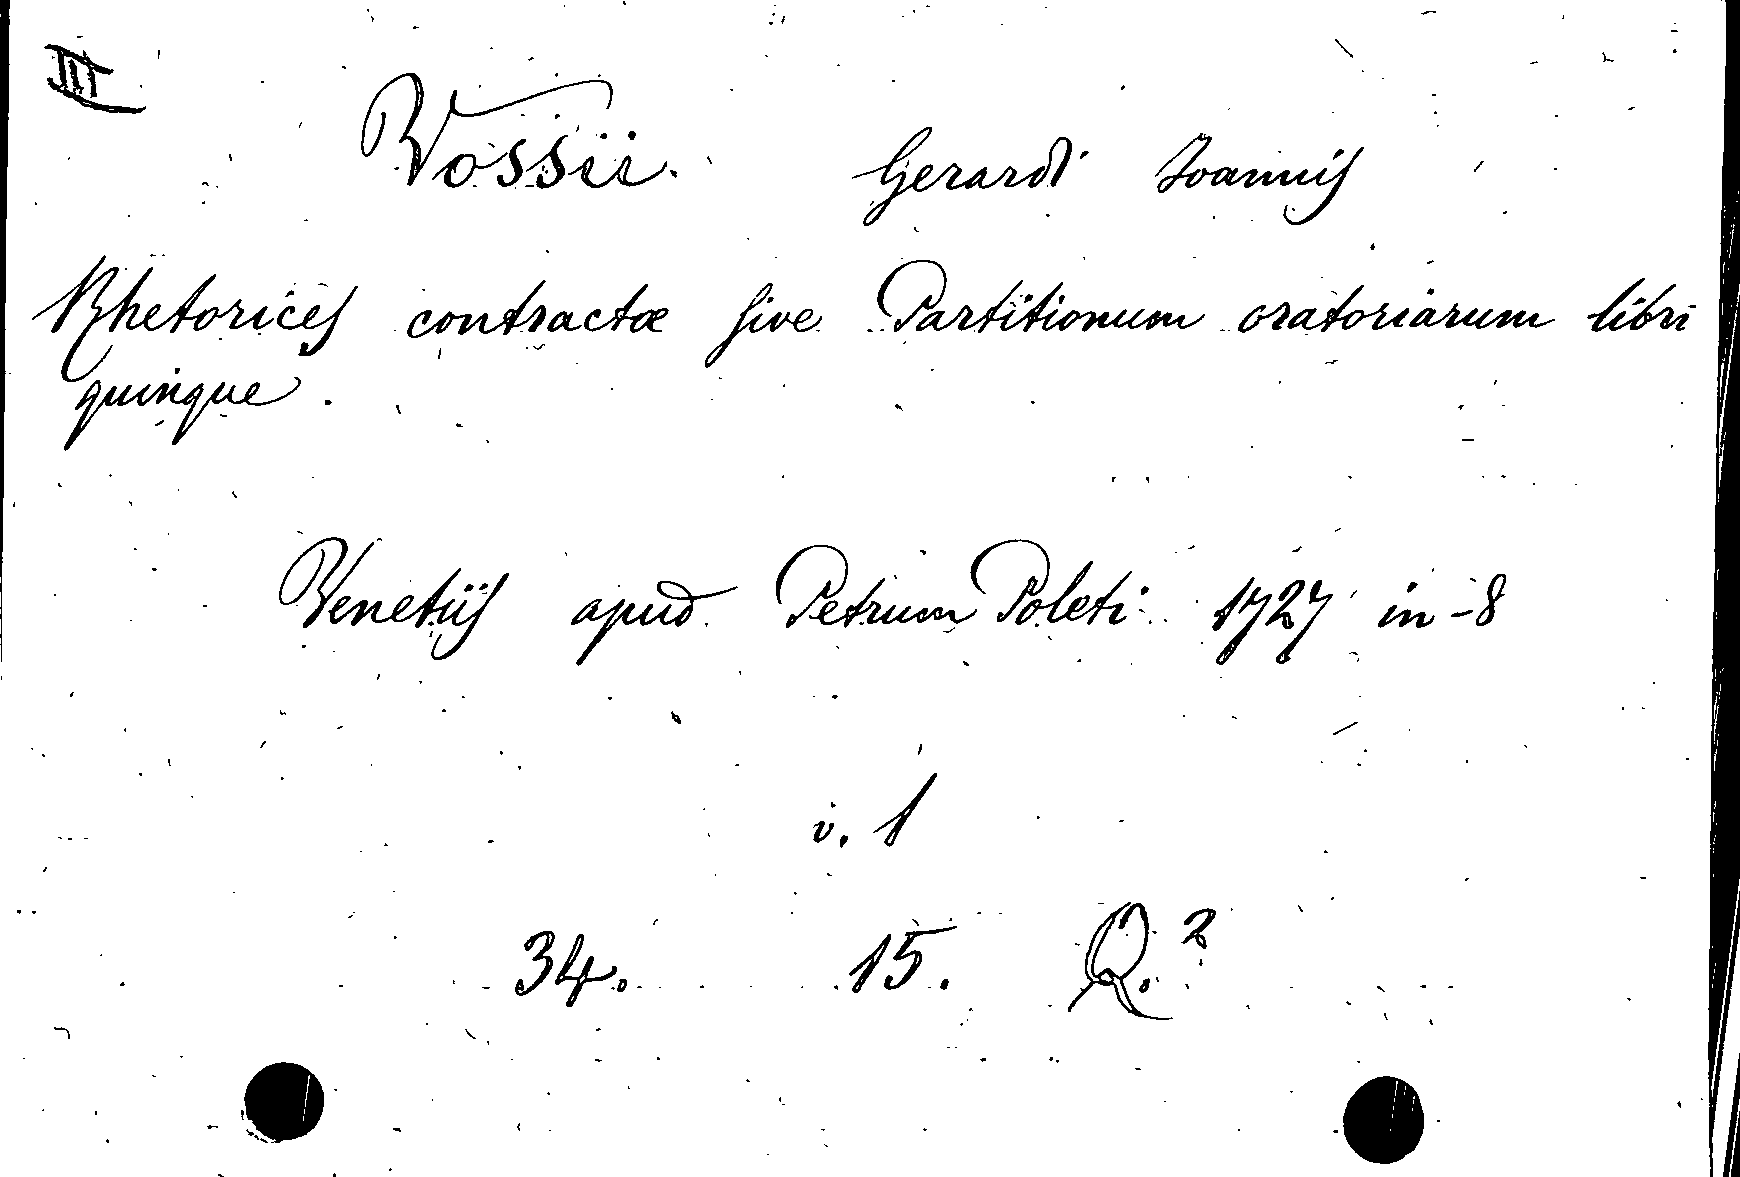 III
Vossii. Gerardi Ioannis
Rhetorices contractæ sive Partitionum oratoriarum libri
quinque.
Venetiis apud Petrum Poleti 1727 in-8
v. 1
34. 15. Q.²